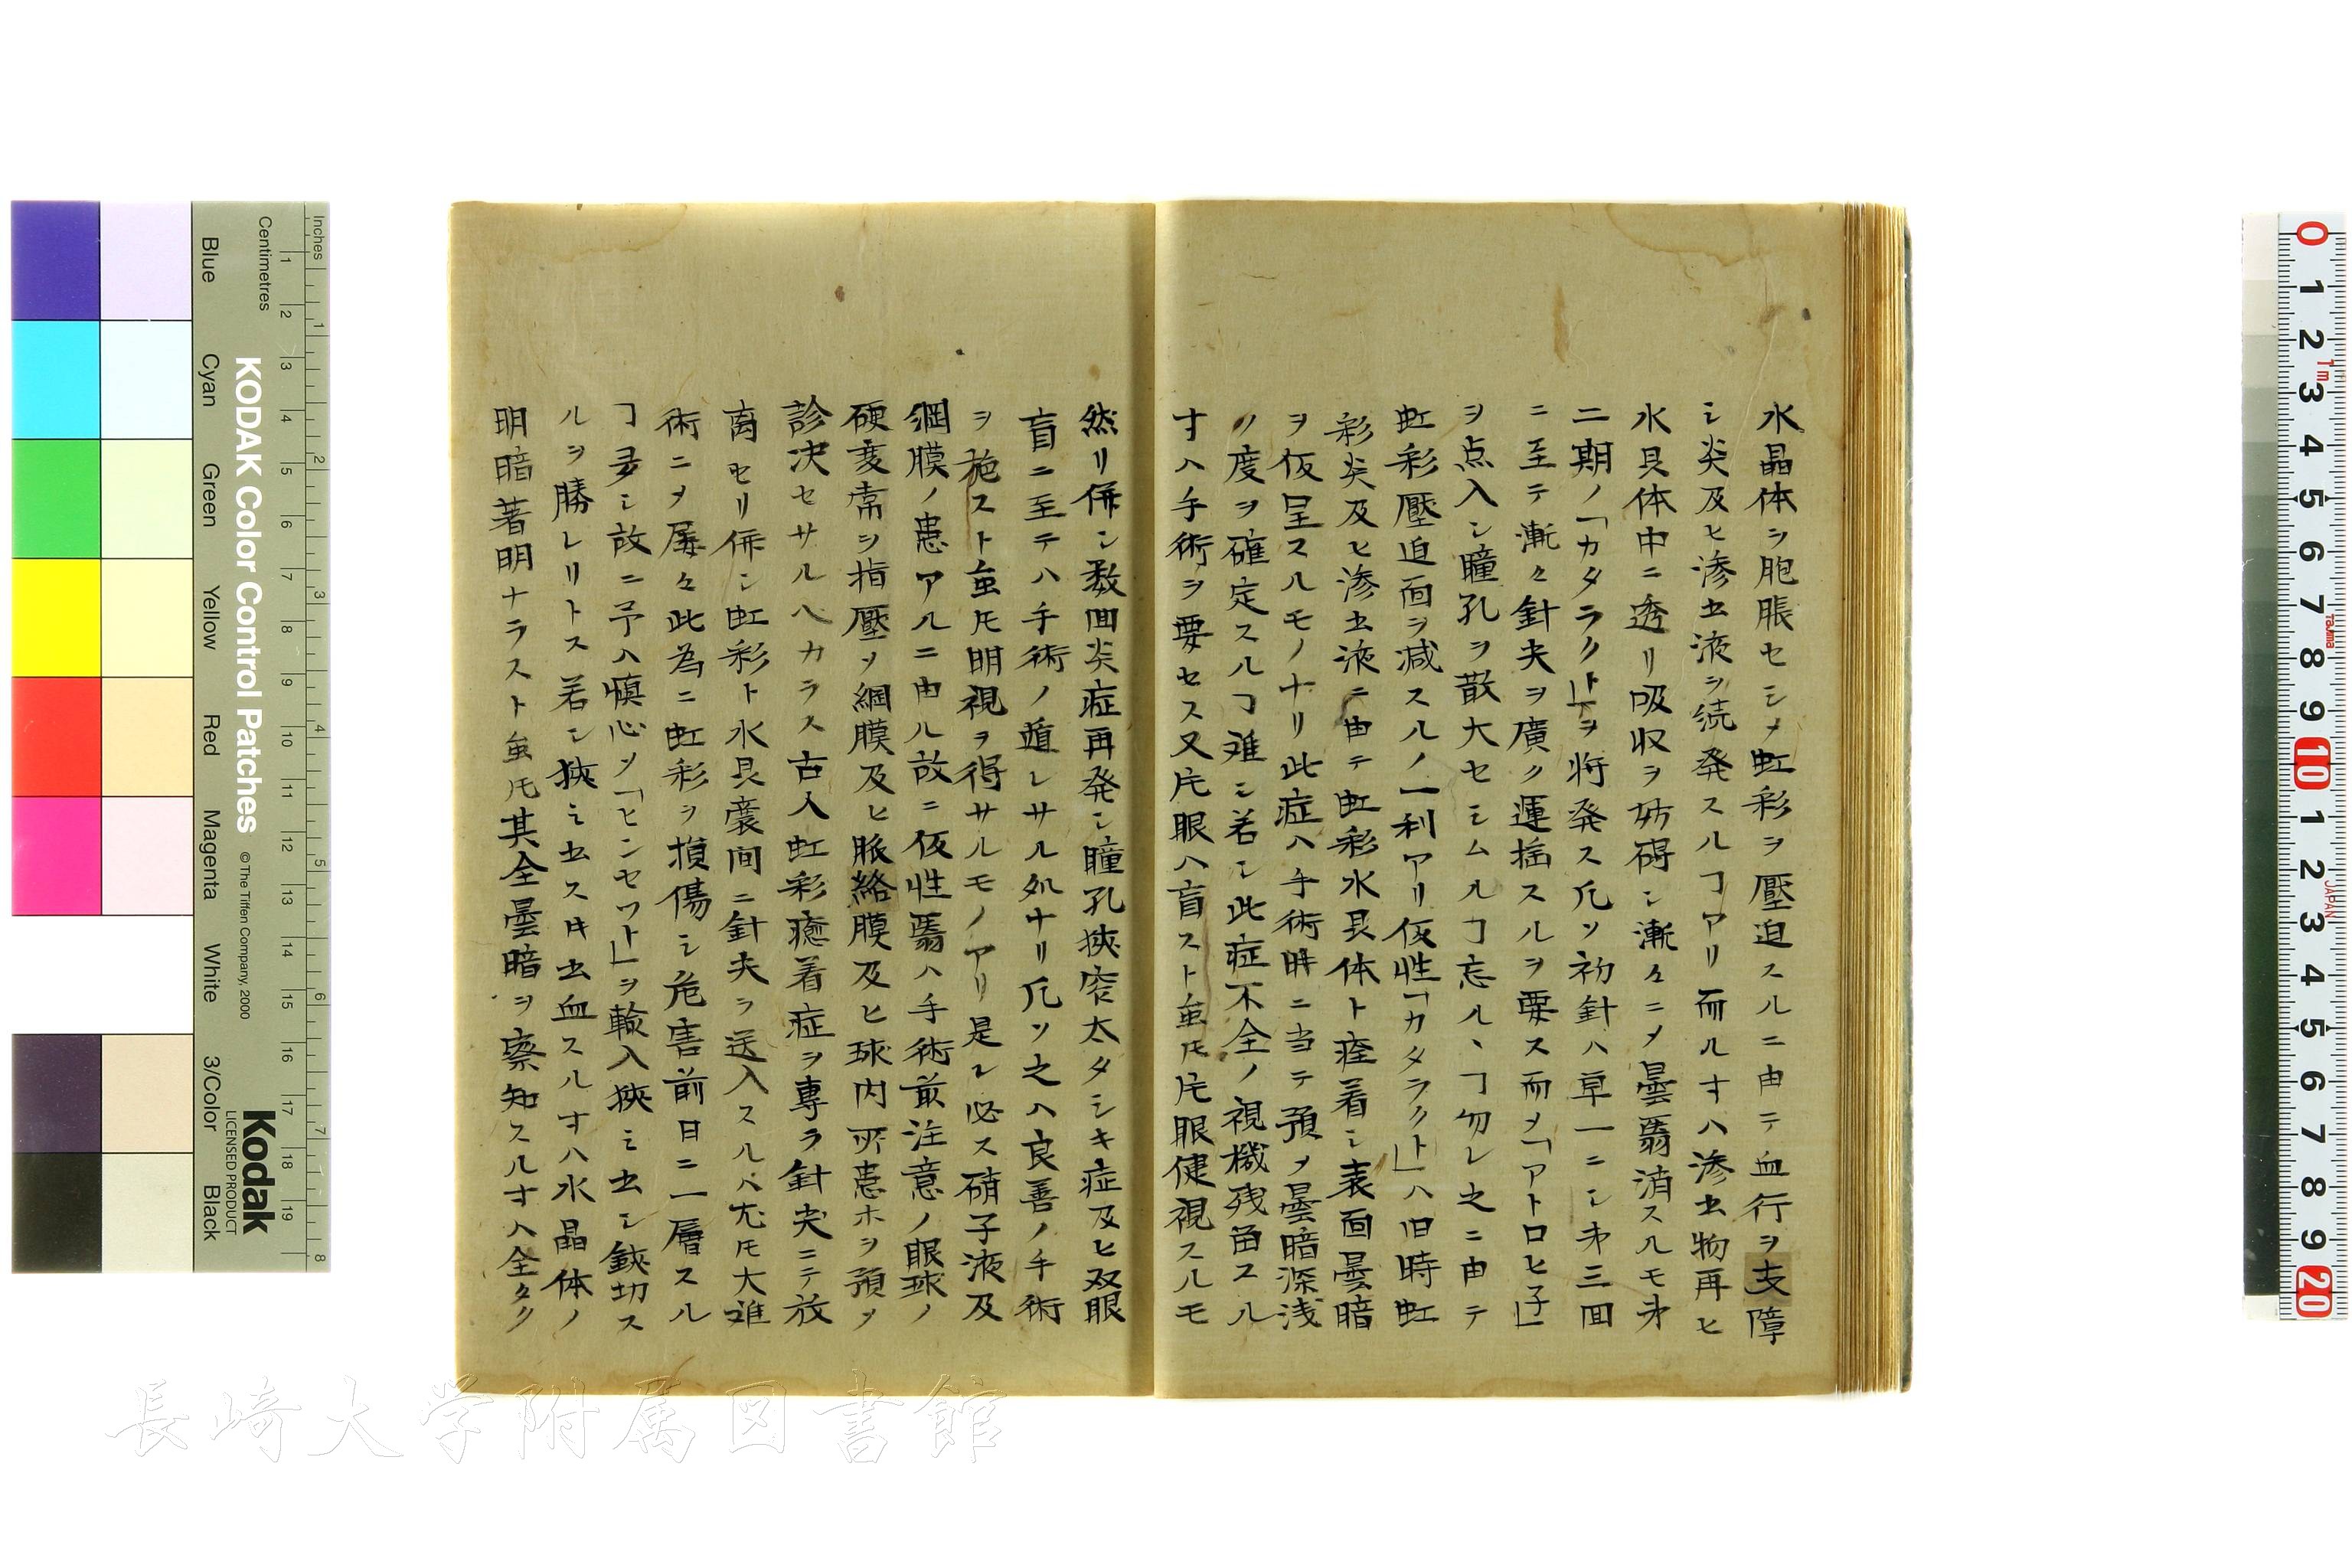 水晶体ヲ胞脹セシメ虹彩ヲ壓迫スルニ由テ血行ヲ支障
シ炎及ヒ滲出液ヲ続発スルヿアリ而ル寸ハ滲出物再ヒ
水具体中ニ透リ吸収ヲ妨碍シ漸々ニメ曇翳消スルモ第
二期ノ「カタラクト」ヲ将発ス凡ソ初針ハ草一ニシ第三回
ニ至テ漸々針尖ヲ廣ク運揺スルヲ要ス而メ「アトロヒ子」
ヲ点入シ瞳孔ヲ散大セシムルヿ忘ルヽヿ勿レ之ニ由テ
虹彩壓迫面ヲ減スルノ一利アリ仮性「カタラクト」ハ旧時虹
彩炎及ヒ滲出液ニ由テ虹彩水具体ト痊着シ表面曇暗
ヲ仮呈スルモノナリ此症ハ手術時ニ当テ預メ曇暗深浅
ノ度ヲ確定スルヿ难シ若シ此症不全ノ視機残留スル
寸ハ手術ヲ要セス又片眼ハ盲スト虽𪜈片眼健視スルモ
然リ併シ数回炎症再発シ瞳孔狹窄太タシキ症及ヒ双眼
盲ニ至テハ手術ノ遁レサル処ナリ凡ソ之ハ良善ノ手術
ヲ施スト虽𪜈明視ヲ得サルモノアリ是レ必ス硝子液及
網膜ノ患アルニ由ル故ニ仮性翳ハ手術前注意ノ眼球ノ
硬変常ヲ指壓メ網膜及ヒ脈絡膜及ヒ球内所患ホヲ預メ
診决セサルヘカラス古人虹彩癒着症ヲ專ラ針尖ニテ放
离セリ併シ虹彩ト水具嚢间ニ針尖ヲ送入スルハ尤𪜈大难
術ニメ屡々此為ニ虹彩ヲ損傷シ危害前日ニ一層スル
ヿ多シ故ニ予ハ慎心メ「ヒンセット」ヲ輸入狹ミ出シ鋏切ス
ルヲ勝レリトス若シ狹ミ出ス时出血スル寸ハ水晶体ノ
明暗著明ナラスト虽𪜈其全曇暗ヲ察知スル寸ハ全タク
KODAK Color Control Patches
© The Tiffen Company, 2000
Kodak
LICENSED PRODUCT
Inches
Centimetres
Blue
Cyan
Green
Yellow
Red
Magenta
White
3/Color
Black
長崎大学附属図書館